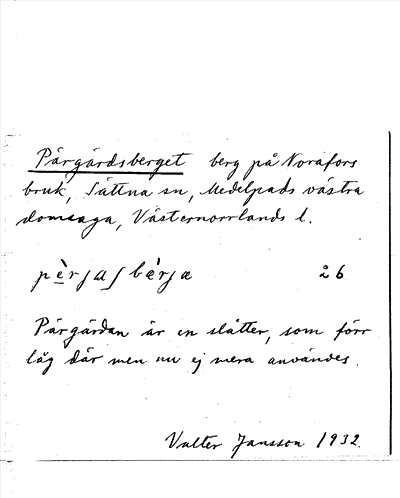 Pärgärdsberget berg på Norafors
bruk, Sättna sn, Medelpads västra
domsaga, Västernorrlands l.
pèrjaʃbèrjæ 26
Pärgärdan är en slåtter, som förr
låg där men nu ej mera användes.
Valter Jansson 1932.